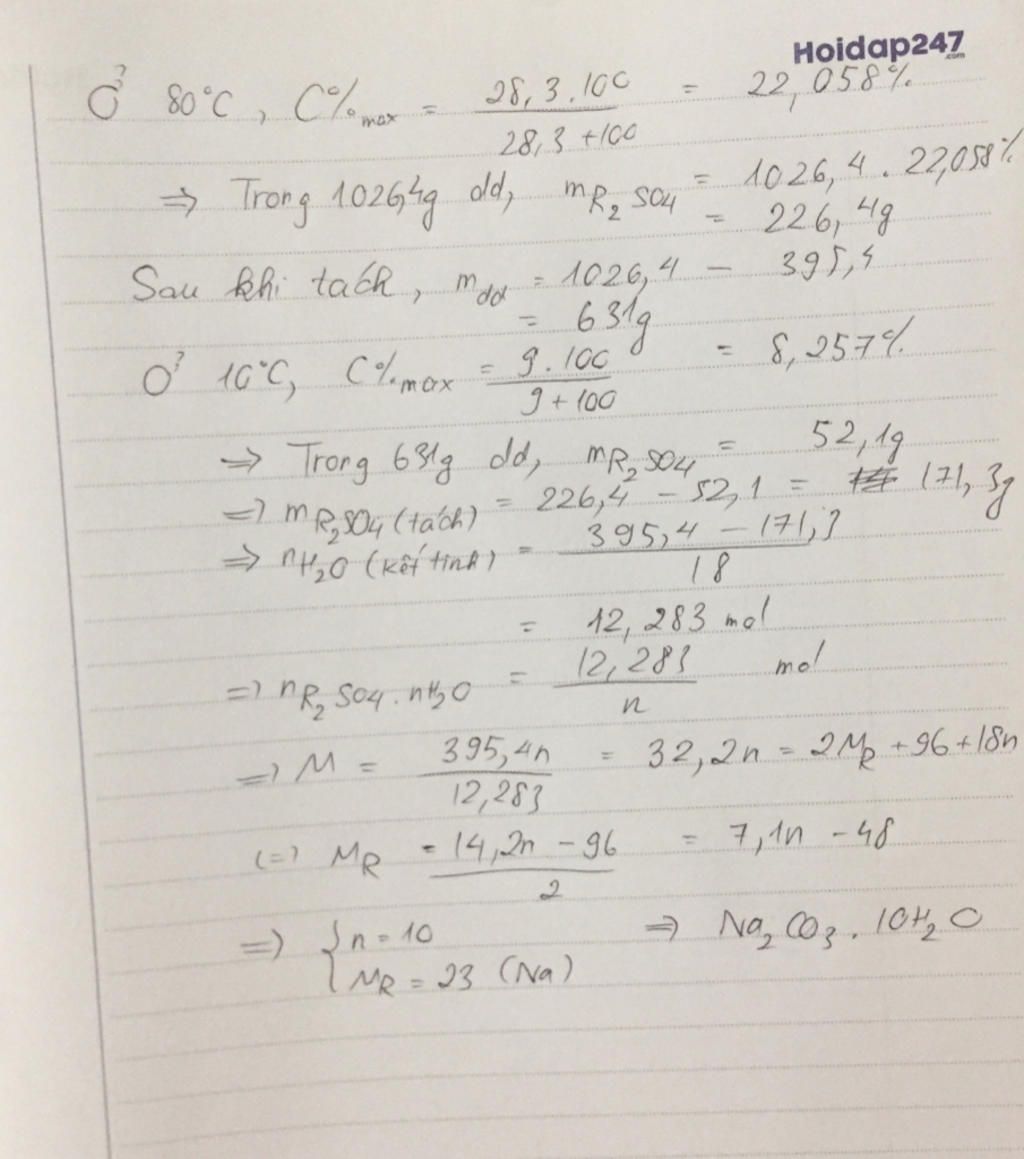 Hoidap247
.com
Ở 80°C, C%max = 28,3.100 / 28,3+100 = 22,058%
=> Trong 1026,4g dd, mR2SO4 = 1026,4 . 22,058%
= 226,4g
Sau khi tách, mdd = 1026,4 - 395,4
= 631g
Ở 10°C, C%max = 9.100 / 9+100 = 8,257%
=> Trong 631g dd, mR2SO4 = 52,1g
=> mR2SO4 (tách) = 226,4 - 52,1 = 171,3g
=> nH2O (kết tinh) = 395,4 - 171,3 / 18
= 12,283 mol
=> nR2SO4.nH2O = 12,283 / n mol
=> M = 395,4n / 12,283 = 32,2n = 2MR + 96 + 18n
(=) MR = 14,2n - 96 / 2 = 7,1n - 48
=> { n = 10 => Na2CO3.10H2O
MR = 23 (Na)